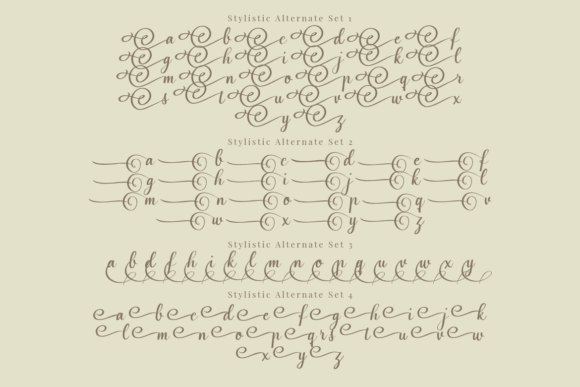 Stylistic Alternate Set 1
a b c d e f
g h i j k l
m n o p q r
s t u v w x
y z
Stylistic Alternate Set 2
a b c d e f
g h i j k l
m n o p q v
w x y z
Stylistic Alternate Set 3
a b d f h i k l m n o p q u v w x y
Stylistic Alternate Set 4
a b c d e f g h i j k
l m n o p q r s t u v w
x y z